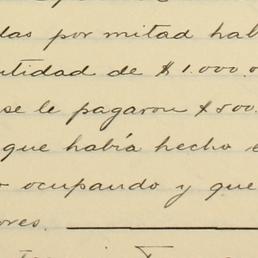 das por mitad hab
ntidad de $1.000.0
se le pagaron $500.
que había hecho e
ocupando y que
ores.